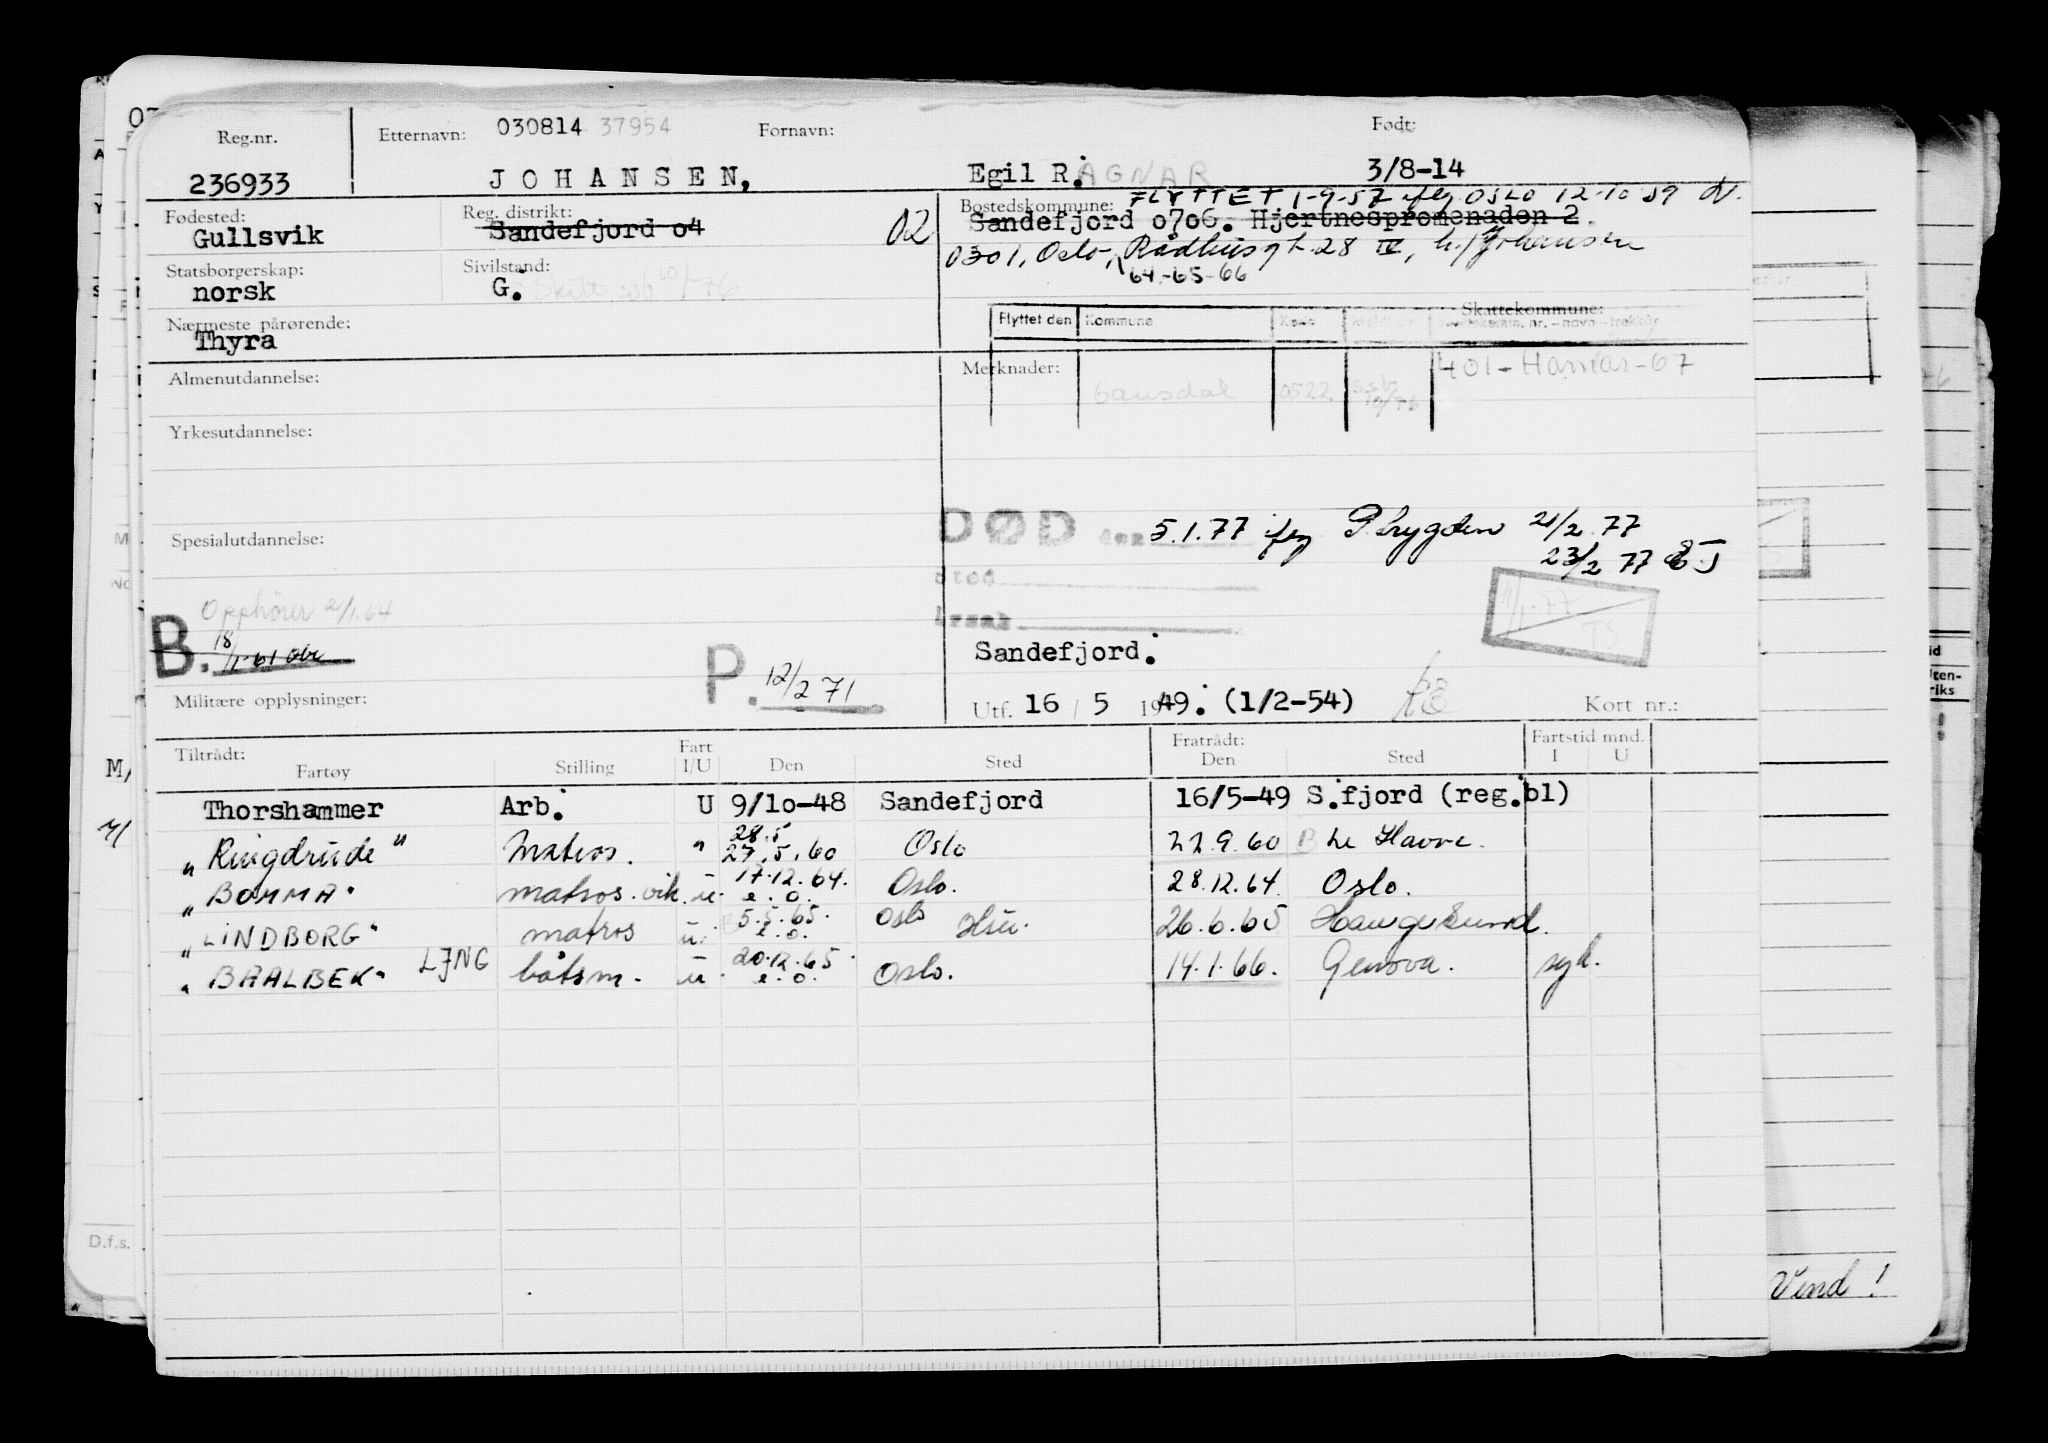 Reg.nr. Etternavn: 030814 37954 Fornavn: Født:
236933 JOHANSEN, Egil R. AGNAR 3/8-14
Fødested: Reg. distrikt: Bostedskommune: FLYTTET 1-9-57 iflg OSLO 12-10-59
Gullsvik Sandefjord o4 02 Sandefjord o7o6. Hjertnespromenaden 2.
0301, Oslo, Rådhusgt. 28 IV, h/Johansen
Statsborgerskap: Sivilstand: 64-65-66
norsk G. Skilt, ssb 10/76
Skattekommune:
Nærmeste pårørende: Flyttet den Kommune
Thyra
Almenutdannelse: Merknader: Gausdal 0522 ssb 10/76 401-Hamar-67
Yrkesutdannelse:
DØD den 5.1.77 iflg P.trygden 21/2 77
Spesialutdannelse: 23/2 77 EJ
Sted
Opphører 2/1.64
Årsak
1/1-77 TS
B. 18/1-61
Sandefjord.
P. 12/2 71
Militære opplysninger: Utf. 16 / 5 1949. (1/2-54) Kort nr.:
Tiltrådt: Fart Fratrådt: Fartstid mnd.
Fartøy Stilling I/U Den Sted Den Sted I U
Thorshammer Arb. U 9/1o-48 Sandefjord 16/5-49 S.fjord (reg.bl)
28.5
"Ringdrude" Matros. " 27.5.60 Oslo 22.9.60 Le Havre.
17.12.64.
"BOMMA" matros.vik. u. e.o. Oslo. 28.12.64 Oslo.
5.5.65.
"LINDBORG" matros u. e.o. Oslo Hsu. 26.6.65 Haugesund.
20.12.65.
"BAALBEK" LJNG båtsm. u. e.o. Oslo. 14.1.66. Genova. syk.
D.f.s.
Vend!